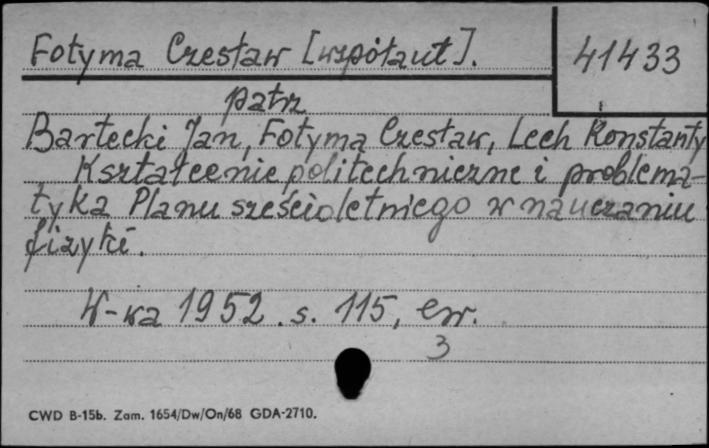 Fotyma Czesław [współaut].
41433
patrz
Bartecki Jan, Fotyma Czesław, Lech Konstanty
Kształcenie politechniczne i problema-
tyka Planu sześcioletniego w nauczaniu
fizyki.
W-wa 1952. s. 115,
3
CWD B-15b. Zam. 1654/Dw/On/68 GDA-2710.